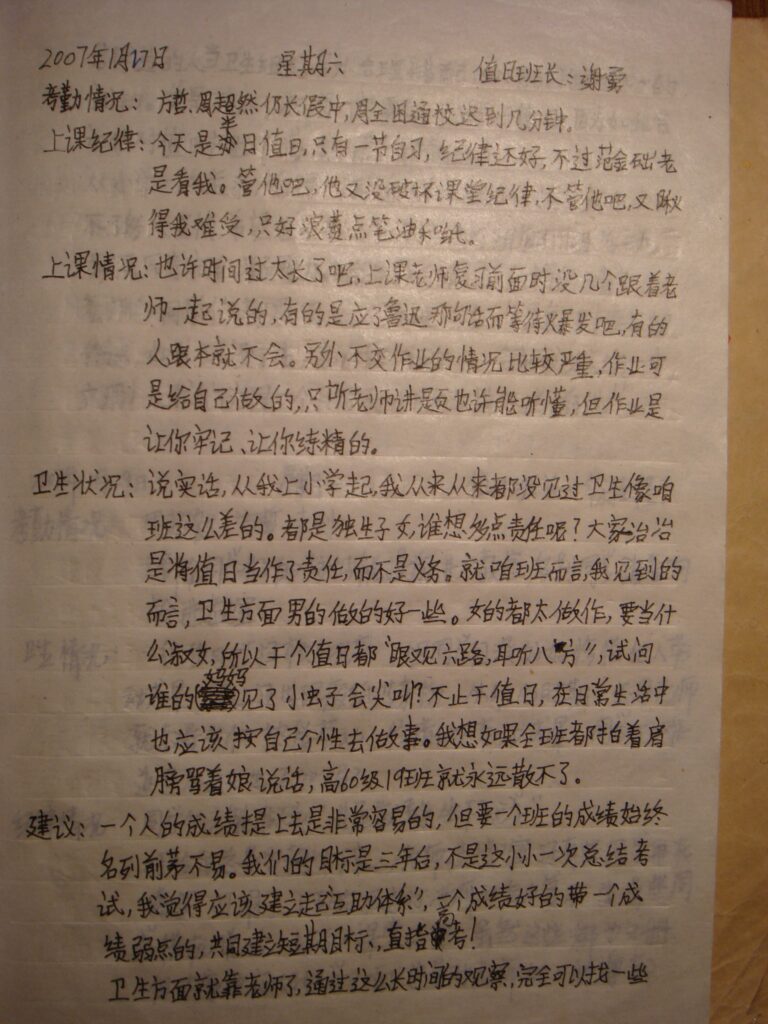 2007年1月27日 星期六 值日班长：谢勇
考勤情况：方哲、周超然仍长假中，周全因通校迟到几分钟。
上课纪律：今天是半日值日，只有一节自习，纪律还好，不过范金础老
是看我。管他吧，他又没破坏课堂纪律，不管他吧，又瞅
得我难受，只好浪费点笔油
上课情况：也许时间过太长了吧，上课老师复习前面时没几个跟着老
师一起说的，有的是应了鲁迅那句话而等待火爆发吧，有的
人跟本就不会。另外不交作业的情况比较严重，作业可
是给自己做的，只听老师讲是也许能听懂，但作业是
让你牢记、让你练精的。
卫生状况：说实话，从我上小学起，我从来从来都没见过卫生像咱
班这么差的。都是独生子女，谁想多点责任呢？大家冶冶
是将值日当作了责任，而不是义务。就咱班而言，我见到的
而言，卫生方面男的做的好一些。女的都太做作，要当什
么淑女，所以干个值日都“眼观六路，耳听八方”，试问
谁的妈妈见了小虫子会尖叫？不止干值日，在日常生活中
也应该按自己个性去做事。我想如果全班都拍着肩
膀骂着娘说话，高60级19班就永远散不了。
建议：一个人的成绩提上去是非常容易的，但要一个班的成绩始终
名列前茅不易。我们的目标是三年后，不是这小小一次总结考
试，我觉得应该建立起“互助体系”，一个成绩好的带一个成
绩弱点的，共同建立短期目标，直指高考！
卫生方面就靠老师了，通过这么长时间的观察，完全可以找一些